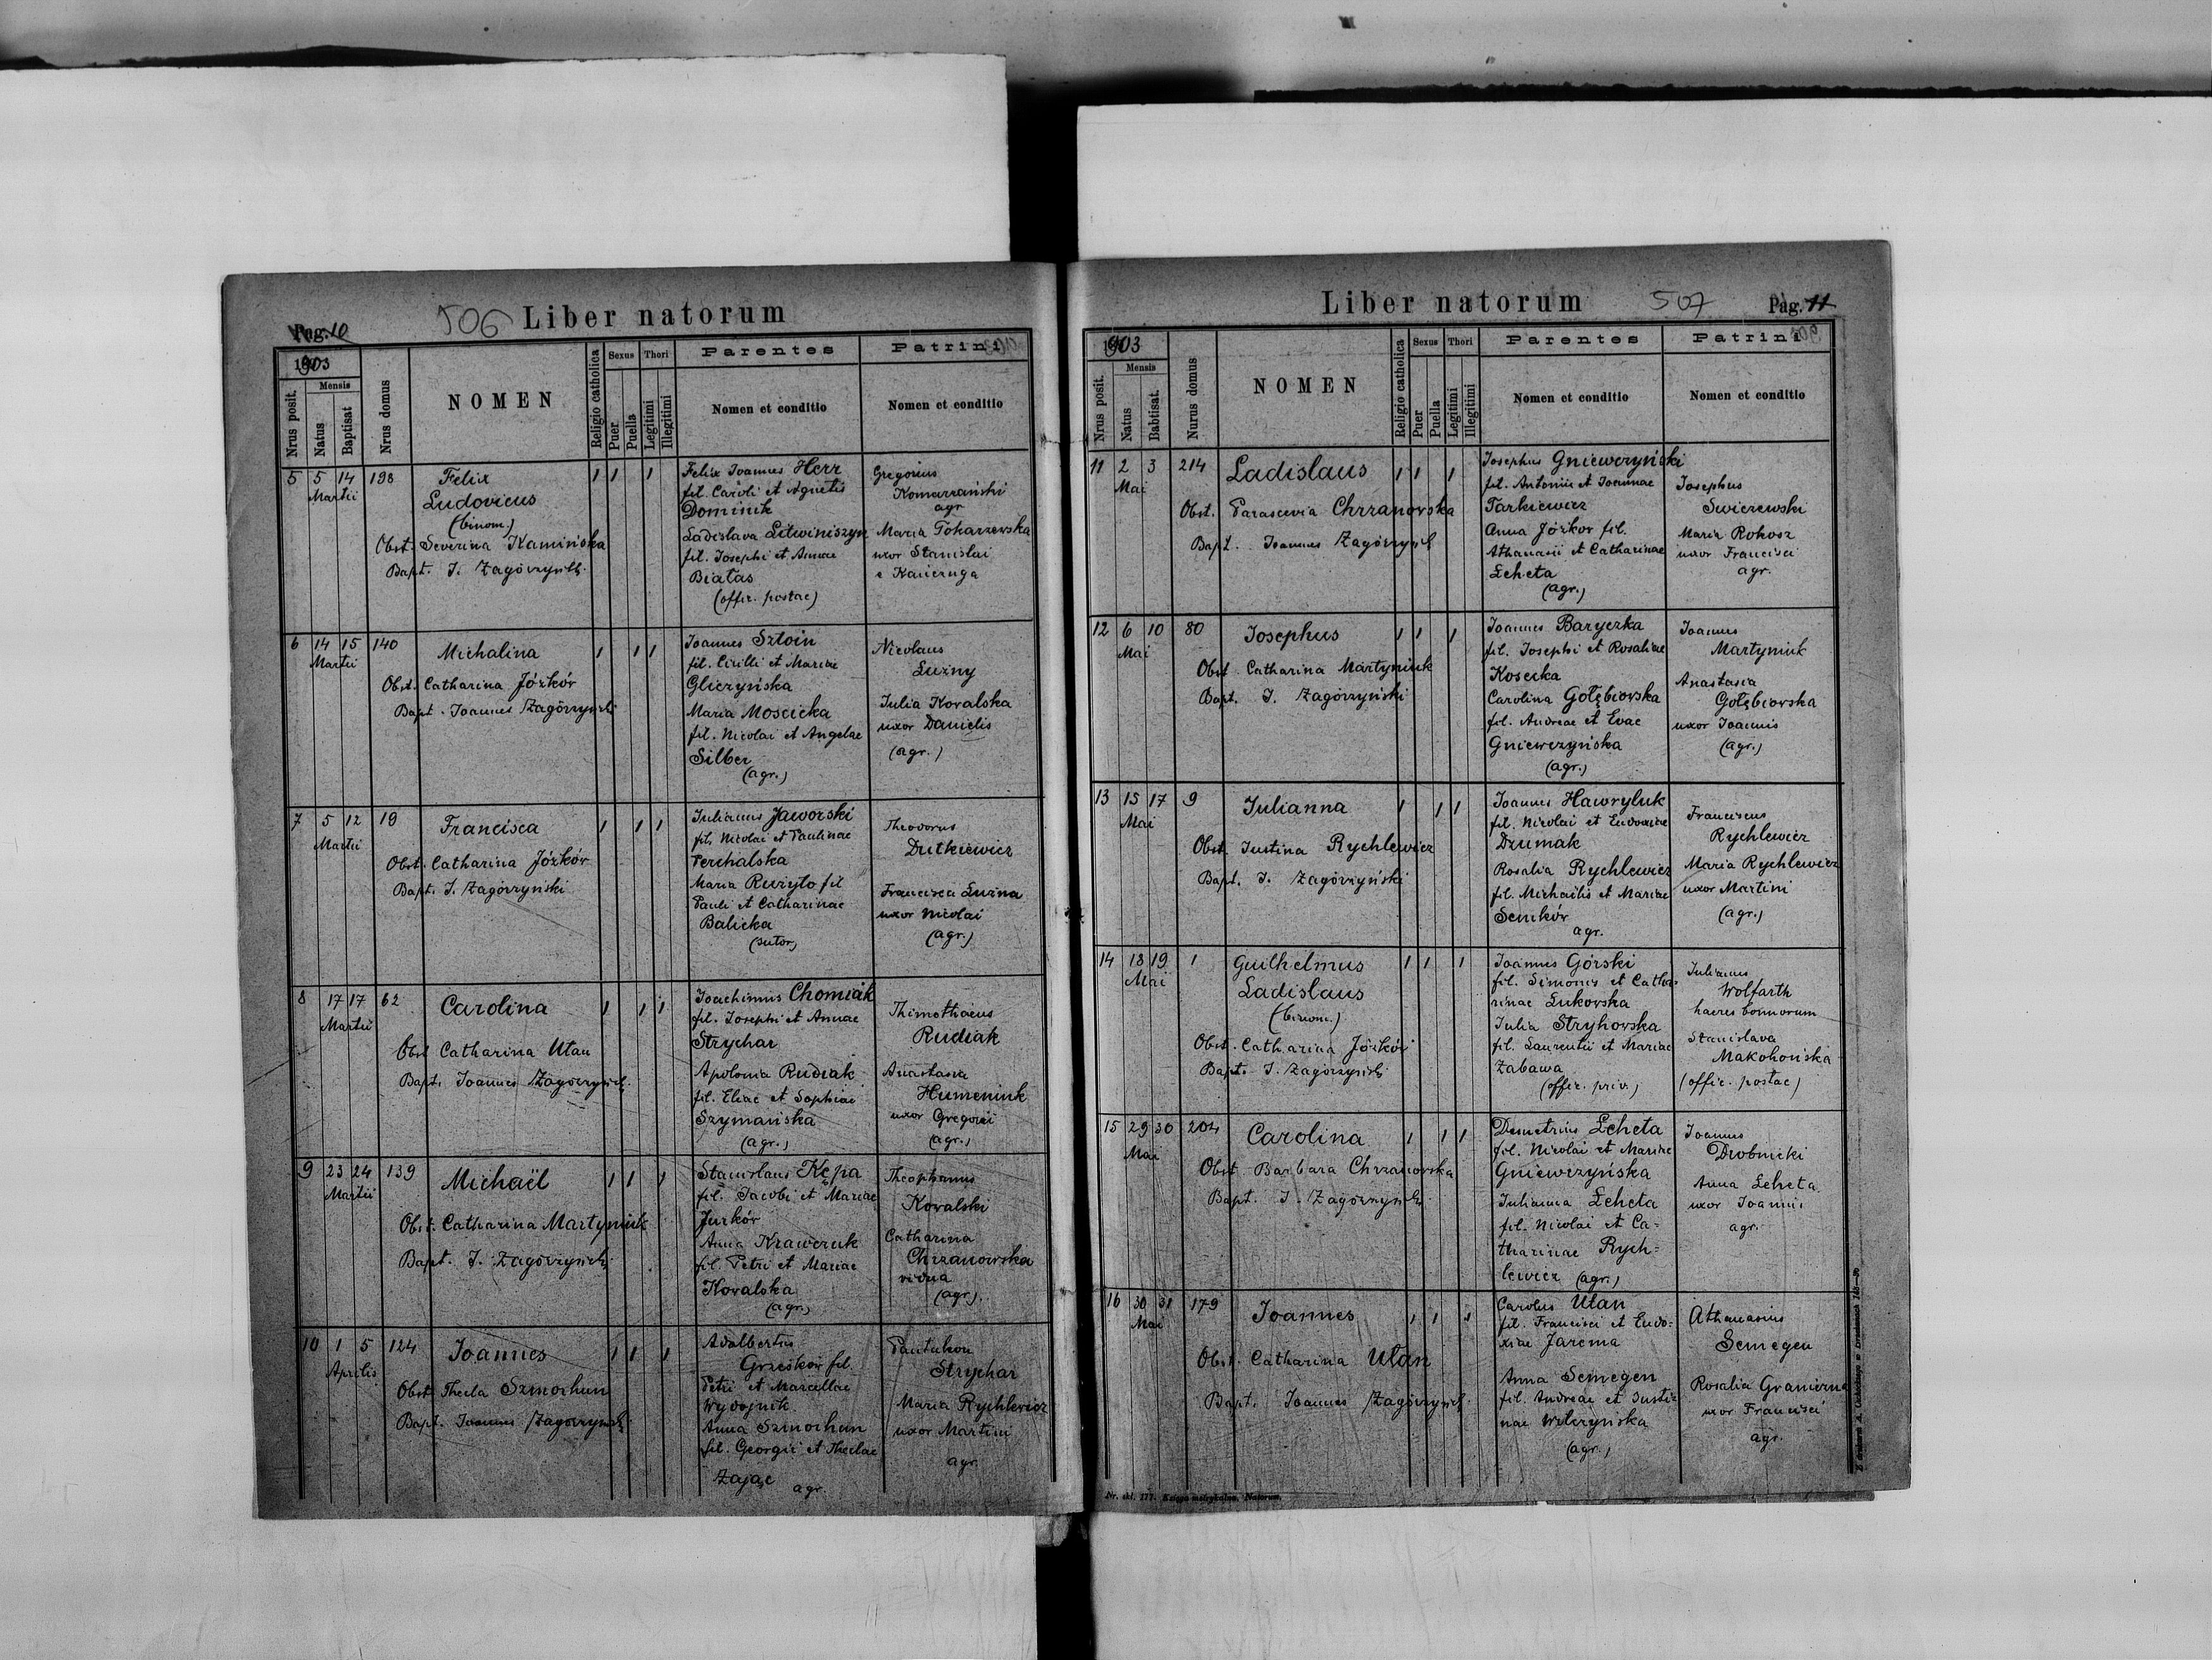 Pag. 10
506
Liber natorum
1903
Nrus posit.
Mensis
Natus
Baptisat
Nrus domus
NOMEN
Religio catholica
Sexus
Puer
Puella
Thori
Legitimi
Illegitimi
Parentes
Nomen et conditio
Patrini
Nomen et conditio
5 5 14 198
Martii
Felix
Ludovicus
(binom.)
Obst. Severina Kamińska
Bapt. J. Zagórzyński
1 1 1
Felix Joannes Herz
fil. Caroli et Agnetis
Dominik
Ladislava Litwiniszyn
fil. Josephi et Annae
Białas
(offic. postae)
Gregorius
Komarzański
agr
Maria Tokarzewska
uxor Stanislai
6 14 15 140
Martii
Michalina
Obst. Catharina Józków
Bapt. Joannes Zagórzyński
1 1 1
Joannes Sztoin
fil. Cirilli et Mariae
Gliczyńska
Maria Moscicka
fil. Nicolai et Angelae
Silber
(agr.)
Nicolaus
Luzny
Julia Kovalska
uxor Danielis
(agr.)
7 5 12 19
Martii
Francisca
Obst. Catharina Józków
Bapt. J. Zagórzyński
1 1 1
Julianus Jaworski
fil. Nicolai et Paulinae
Perchalska
Maria
fil
Pauli et Catharinae
Balicka
(sutor)
Theodorus
Dutkiewicz
Francisca Luzna
uxor Nicolai
(agr.)
8 17 17 62
Martii
Carolina
Obst Catharina Utan
Bapt. Joannes Zagórzyński
1 1 1
Joachimus Chomiak
fil. Josephi et Annae
Strychar
Apolonia Rudiak
fil. Eliae et Sophiae
Szymańska
(agr.)
Thimothaeus
Rudiak
Anastasia
Humeniuk
uxor Gregorii
(agr.)
9 23 24 139
Martii
Michaël
Obst. Catharina Martyniuk
Bapt. J. Zagórzyński
1 1 1
Stanislaus Kępa
fil. Jacobi et Mariae
Jurków
Anna Krawczuk
fil. Petri et Mariae
Kovalska
(agr.)
Theophanus
Kovalski
Catharina
Chrzanowska
vidua
(agr).
10 1 5 124
Aprilis
Joannes
Obst Thecla Szmorhun
Bapt. Joannes Zagórzyński
1 1 1
Adalbertus
Grześków fil.
Petri et Marcellae
Wydojnik
Anna Szmorhun
fil. Georgii et Theclae
Zając
agr.
Pantalion
Strychar
Maria Rychlewicz
uxor Martini
agr.
Liber natorum
507
Pag. 11
1903
Nrus posit.
Mensis
Natus
Babtisat.
Nurus domus
NOMEN
Religio catholica
Sexus
Puer
Puella
Thori
Legitimi
Illegitimi
Parentes
Nomen et conditio
Patrini
Nomen et conditio
11 2 3 214
Mai
Ladislaus
Obst. Parascevia Chrzanovska
Bapt. Joannes Zagórzyński
1 1 1
Josephus Gniewczyński
fil. Antonii et Joannae
Tarkiewicz
Anna Józkov fil.
Athanasii et Catharinae
Leheta
(agr.)
Josephus
Swierzewski
Maria Rohosz
uxor Francisci
agr.
12 6 10 80
Mai
Josephus
Obst Catharina Martyniuk
Bapt. J. Zagórzyński
1 1 1
Joannes Baryczka
fil. Josephi et Rosaliae
Kosecka
Carolina Gołębiovska
fil. Andreae et Evae
Gniewczyńska
(agr.)
Joannes
Martyniuk
Anastasia
Gołębiovska
uxor Joannis
(agr.)
13 15 17 9
Mai
Julianna
Obst. Justina Rychlewicz
Bapt. J. Zagórzyński
1 1 1
Joannes Hawryluk
fil. Nicolai et Eudoxiae
Drumak
Rosalia Rychlewicz
fil. Michaelis et Mariae
Senków
agr.
Franciscus
Rychlewicz
Maria Rychlewicz
uxor Martini
(agr.)
14 18 19 1
Mai
Guilhelmus
Ladislaus
(binom.)
Obst. Catharina Józków
Bapt. J. Zagórzyński
1 1 1
Joannes Górski
fil. Simonis et Catha-
rinae Lukovska
Julia Stryhowska
fil. Laurentii et Mariae
Zabawa
(offic. priv.)
Julianus
Wolfarth
haeres bonnorum
Stanislava
Makohońska
(offic. postae)
15 29 30 204
Mai
Carolina
Obst Barbara Chrzanovska
Bapt. J. Zagórzyński
1 1 1
Demetrius Leheta
fil. Nicolai et Mariae
Gniewczyńska
Julianna Leheta
fil. Nicolai et Ca-
tharinae Rych-
lewicz (agr.)
Joannes
Drobnicki
Anna Leheta
uxor Joannis
agr.
16 30 31 179
Mai
Joannes
Obst. Catharina Utan
Bapt. Joannes Zagórzyński
1 1 1
Carolus Utan
fil. Francisci et Eudo-
xiae Jarema
Anna Semegen
fil. Andreae et Justi-
nae Wilczyńska
(agr.)
Athanasius
Semegen
Rosalia
uxor Francisci
agr.
Nr. skł. 177. Księga metrykalna. Natorum.